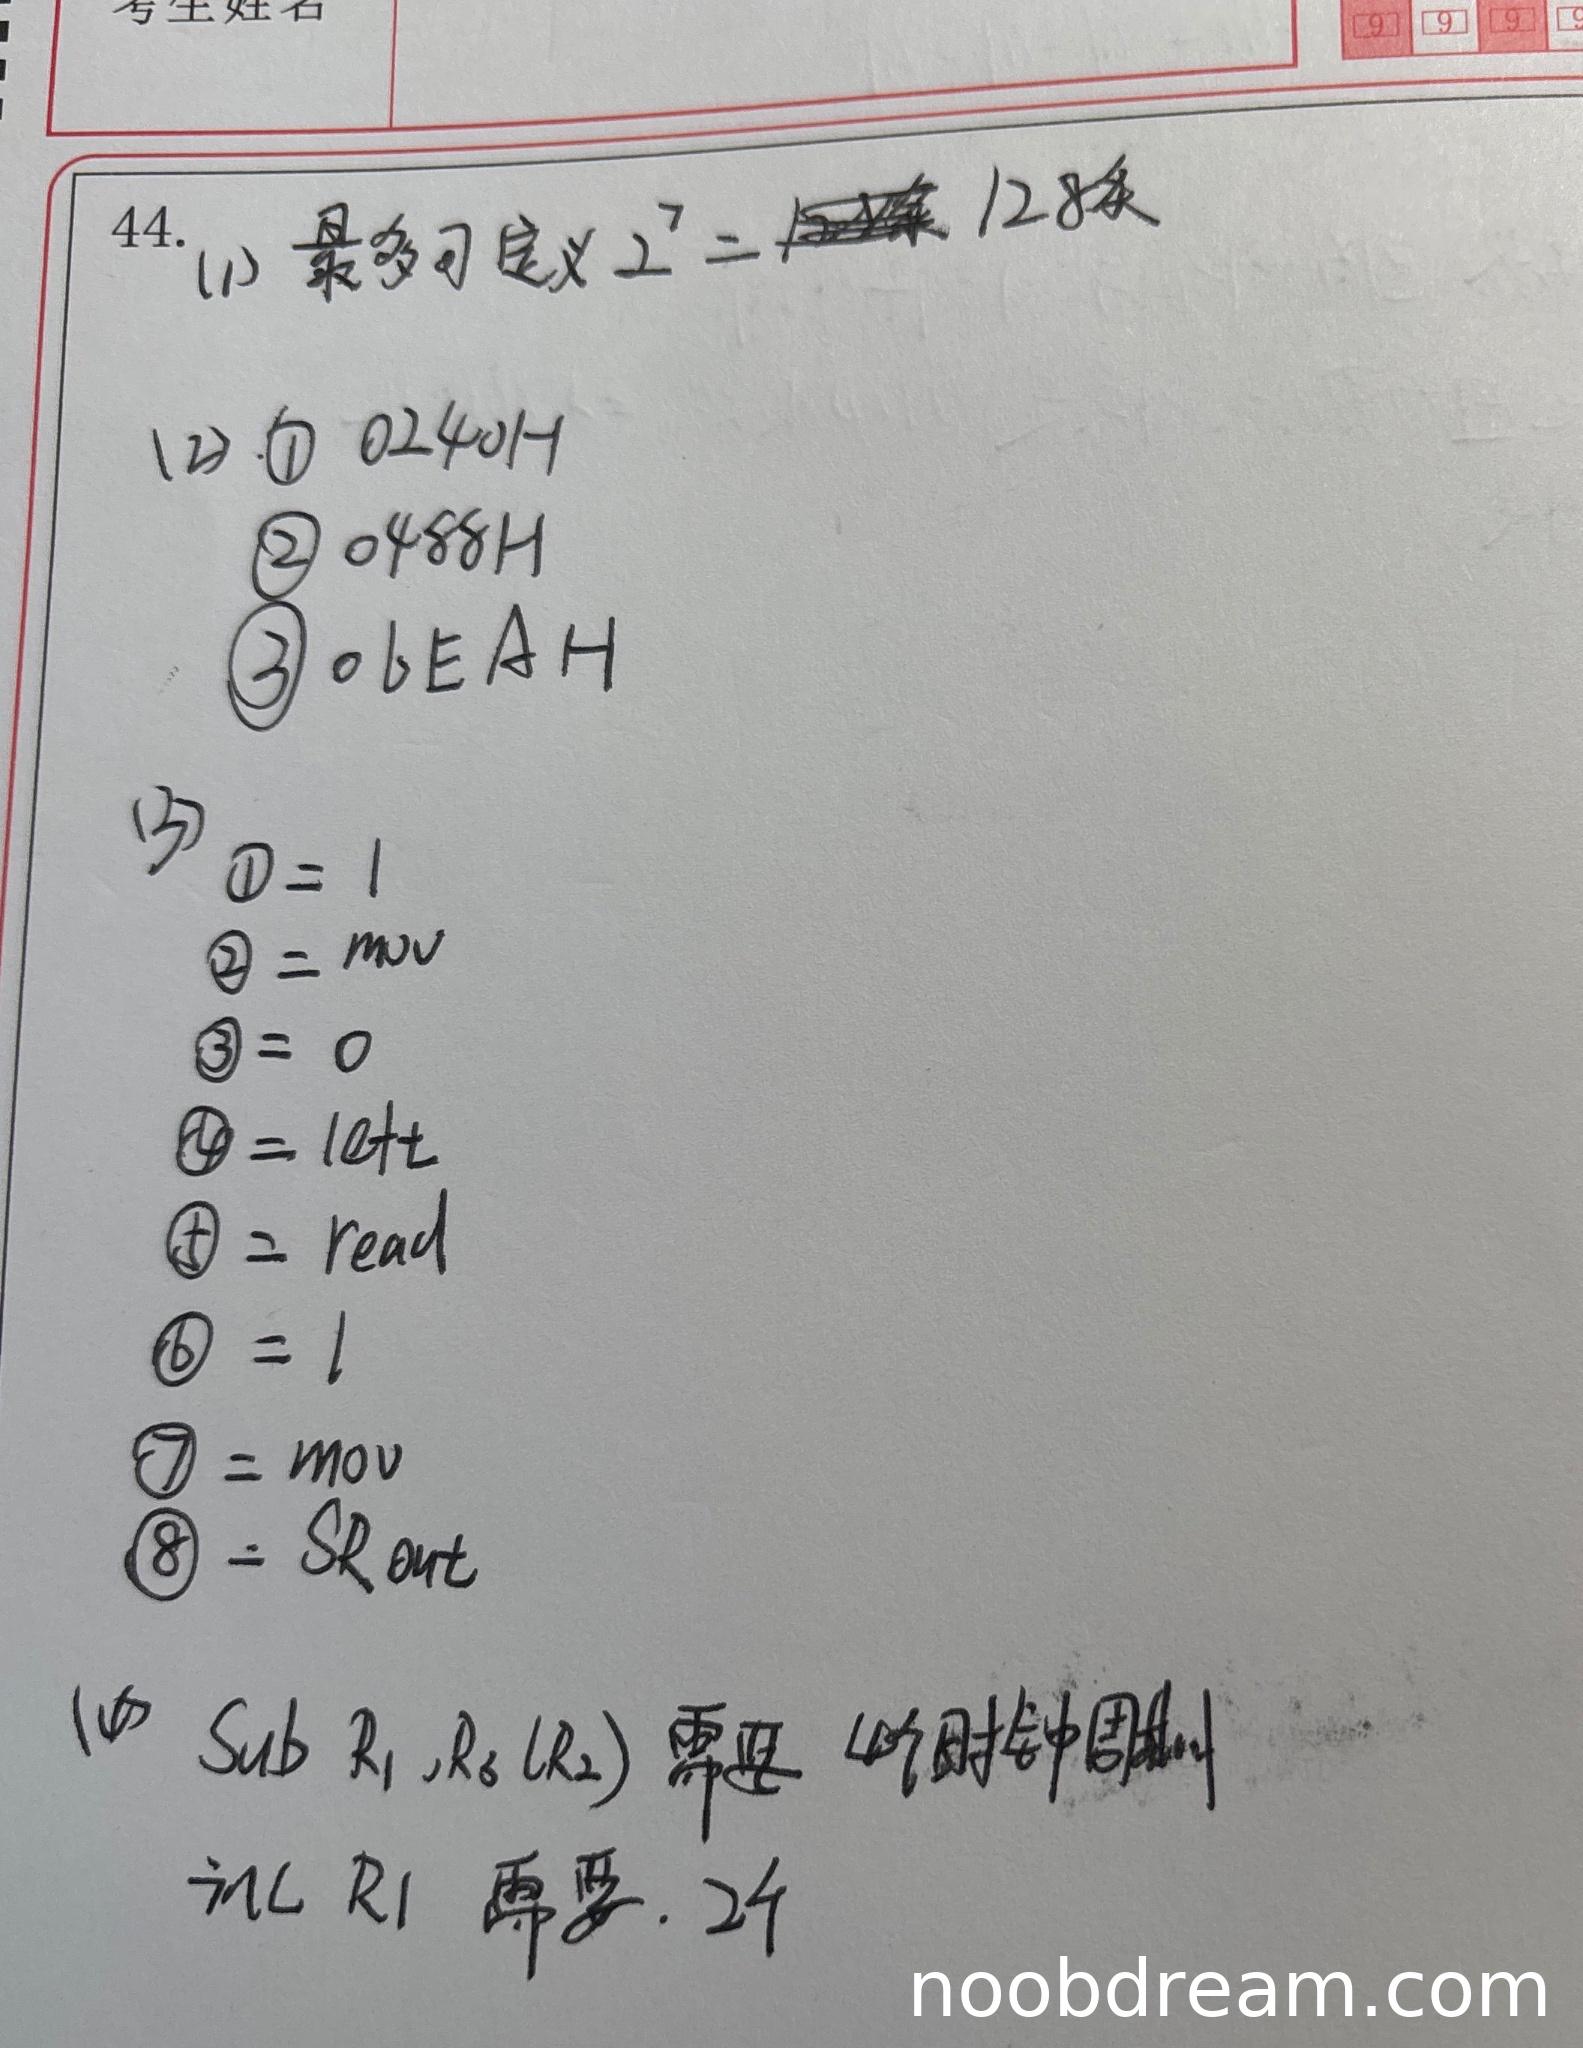 考生姓名
9 9 9 9
44. (1) 最多可定义 2⁷ = 128条
(2) ① 0240H
② 0488H
③ 06EAH
(3)
① = 1
② = mov
③ = 0
④ = left
⑤ = read
⑥ = 1
⑦ = mov
⑧ = SRout
(4) Sub R1, R3 (R2) 需要 4个时钟周期
inc R1 需要. 2个
noobdream.com